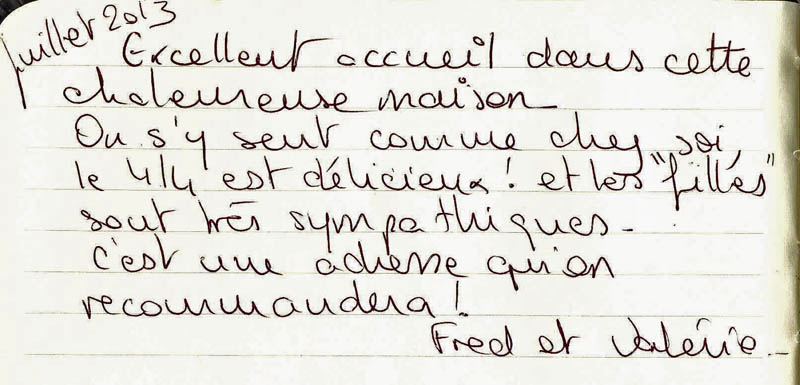 Juillet 2013
Excellent accueil dans cette
chaleureuse maison
On s'y sent comme chez soi,
le 4/4 est délicieux ! et les "filles"
sont très sympathiques -
c'est une adresse qu'on
recommandera !
Fred et Valérie -